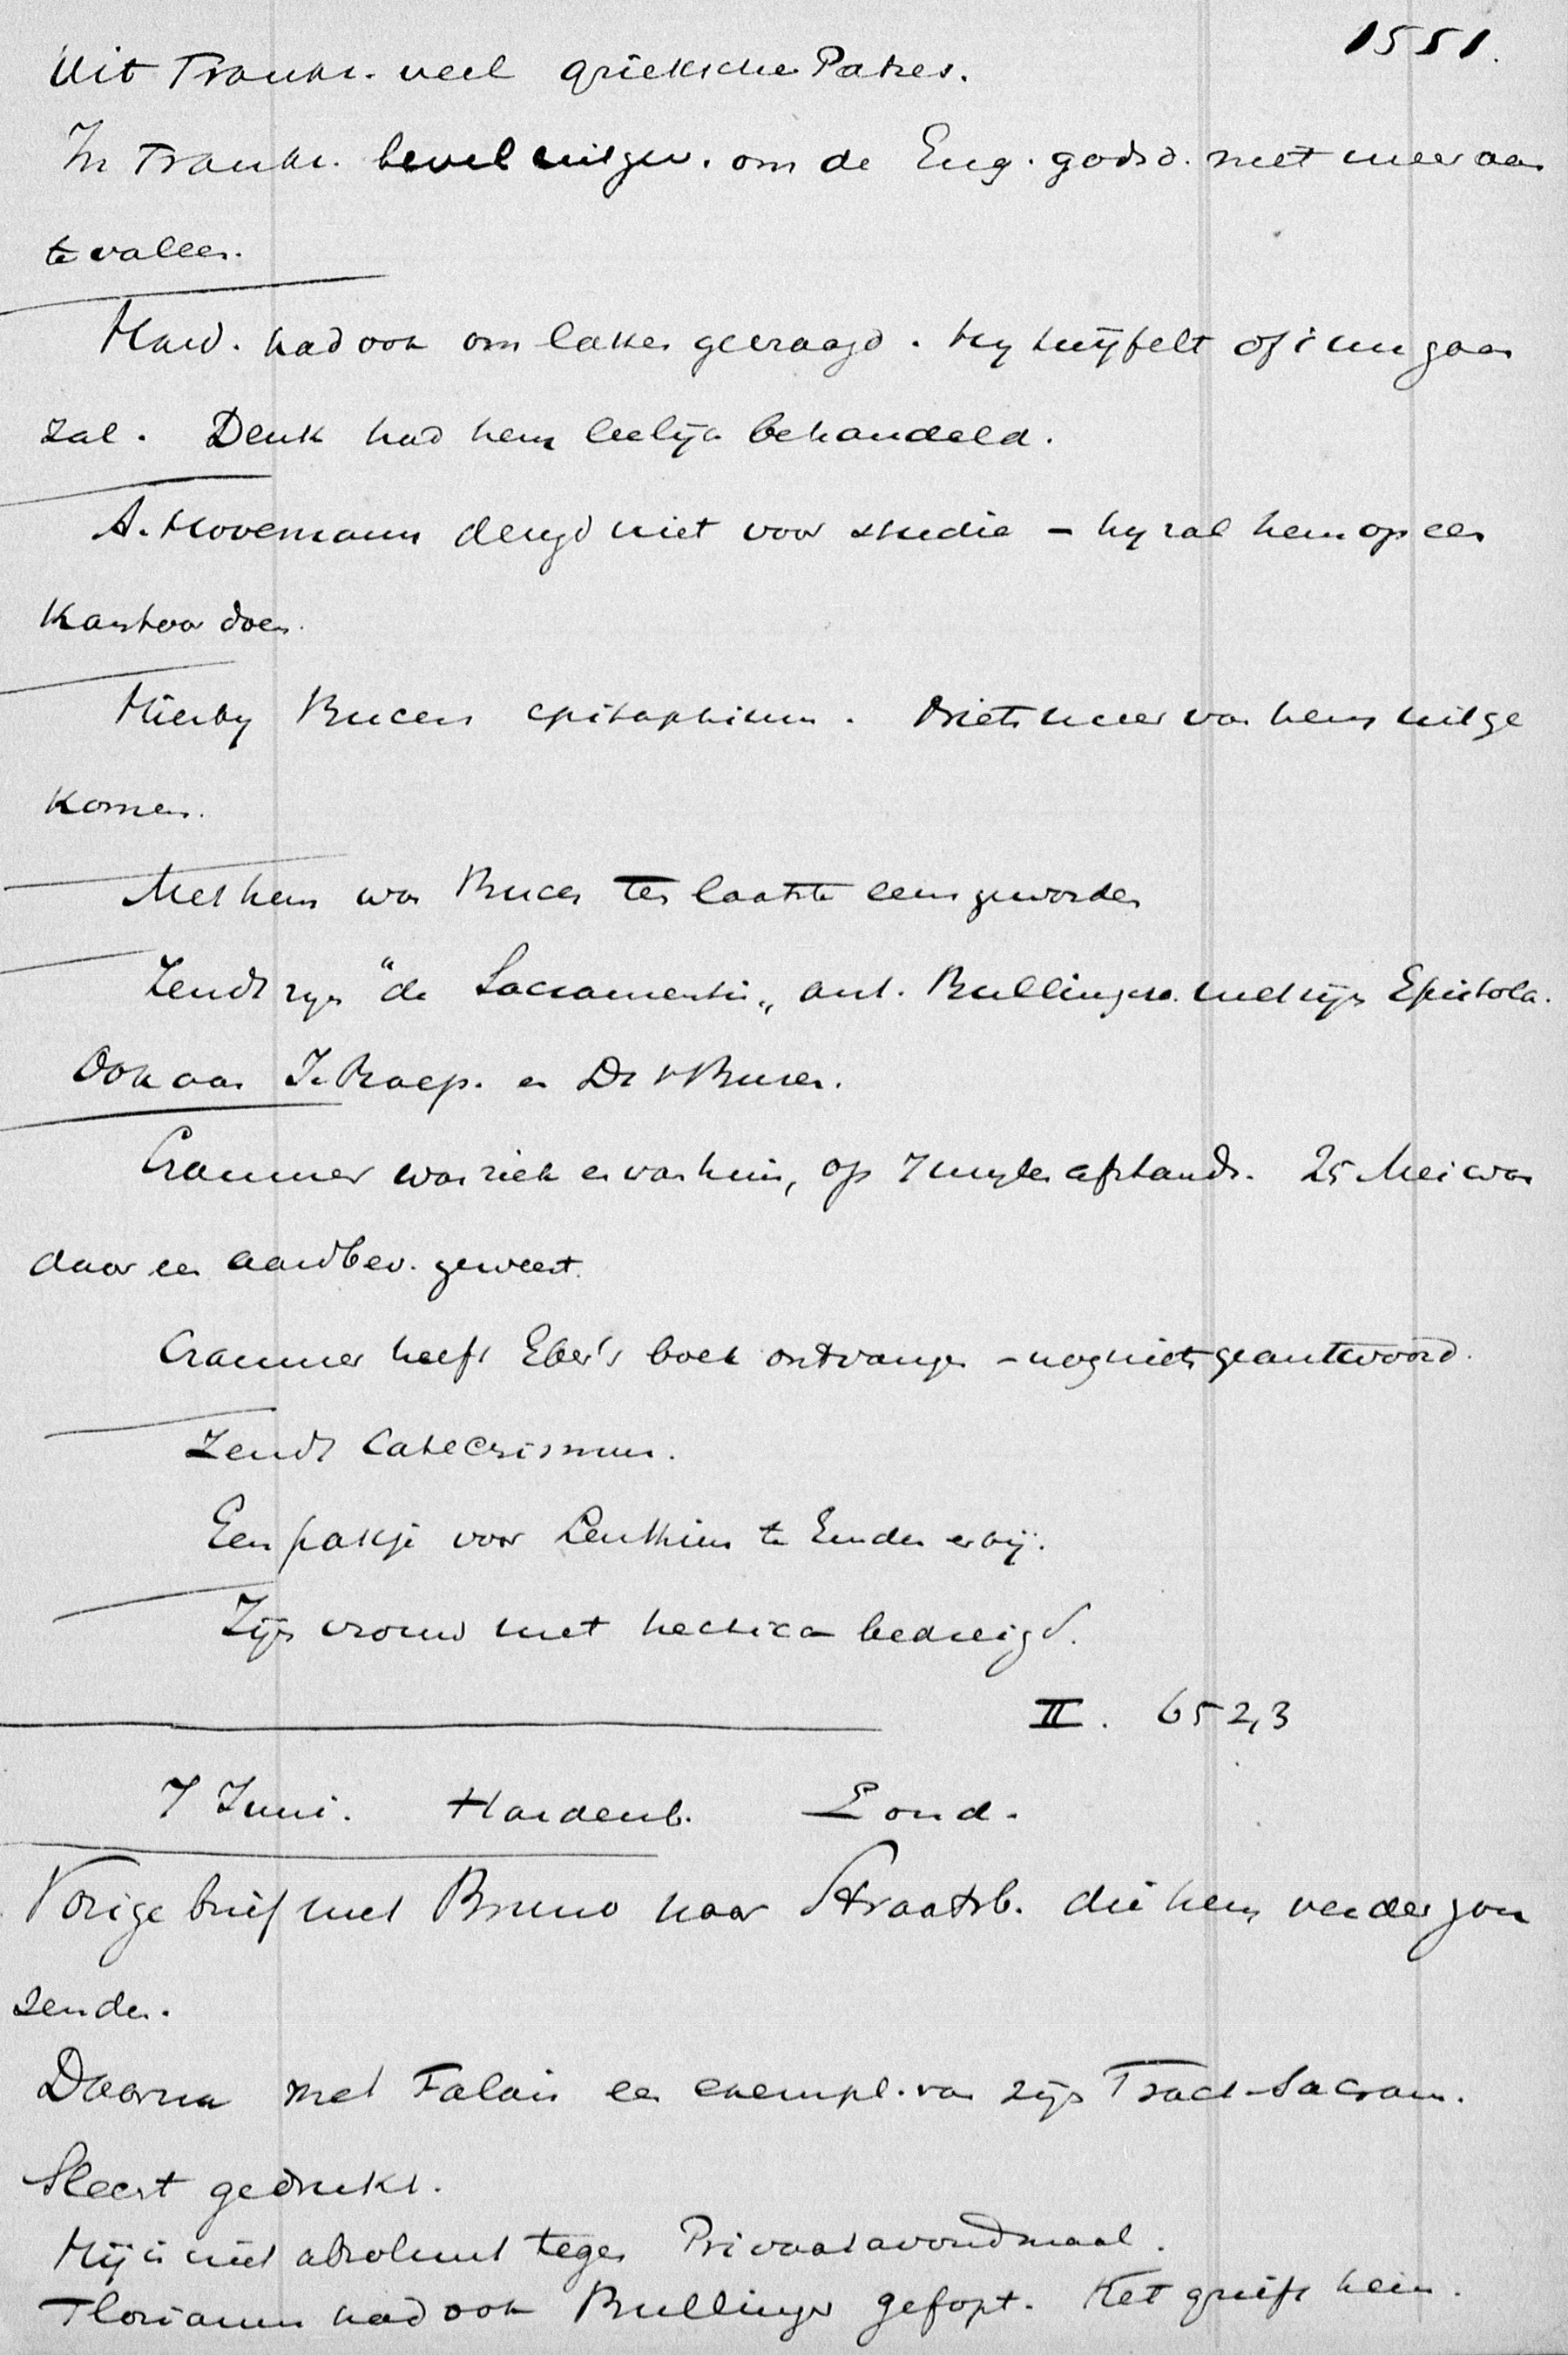 1551.
Uit Frankr. veel grieksche Patres.
In Frankr. bevel uitgev. om de Eng. godsd. niet meer aan
te vallen.
Hard. had ook om laken gevraagd. Hy twyfelt of i nu gaan
zal. Denk had hem leelijk behandeld.
A. Hovemann deugd niet voor studie - hy zal hem op een
Kantoor doen.
Hierby Bucers epitaphium. Niets meer van hem uitge
komen.
Met hem was Bucer ten laatste eens geworden
Zendt zyn "de Sacramentis" aut. Bullingero. met zijn Epistola.
Ook aan en Dr v Buren.
Cranmer was ziek en van huis, op 7 mylen afstands. 25 Mei was
daar een aardbev. geweest.
Cranmer heeft Eber's boek ontvangen - nog niets geantwoord.
Zendt Catechismus.
Een pakje voor Lenthius te Emden erbij.
Zijn vrouw met hectica bedreigd.
II. 652,3
7 Juni. Hardenb. Lond.
Vorige brief met Bruno naar Straatsb. die hem verder zou
zenden.
Daarna met Falais een exempl. van zijn Tract. Sacram.
Slecht gedrukt.
Hij is niet absoluut tegen Privaatavondmaal.
Florianus had ook Bullinger gefopt. Het grieft hem.